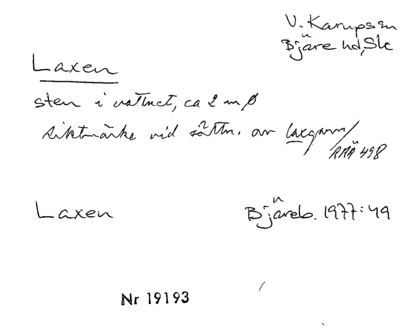 V. Karupssn
Bjäre hd, Sk
Laxen
sten i vattnet, ca 2 m ø
siktmärke vid sättn. av laxgarn/
RAÄ 498
Laxen
Bjäreb. 1977:49
Nr 19193